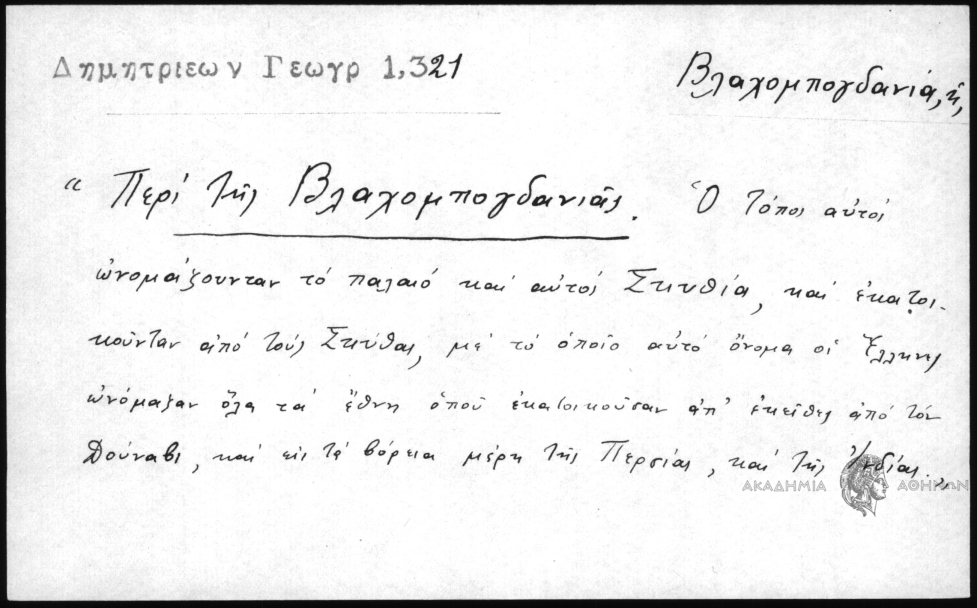 Δημητριεων Γεωγρ 1,321
Βλαχομπογδανιά, ἡ,
“ Περί τῆς Βλαχομπογδανιᾶς. Ὁ τόπος αὐτός
ὠνομάζουνταν τό παλαιό καί αὐτός Σκυθία, καί ἐκατοι-
κοῦνταν ἀπό τούς Σκύθας, μέ τό ὁποῖο αὐτό ὄνομα οἱ Ἕλληνες
ὠνόμαζαν ὅλα τά ἔθνη ὁποῦ ἐκατοικοῦσαν ἀπ' ἐκεῖθες ἀπό τόν
Δούναβι, καί εἰς τά βόρεια μέρη τῆς Περσίας, καί τῆς Ἰνδίας.”
ΑΚΑΔΗΜΙΑ ΑΘΗΝΩΝ